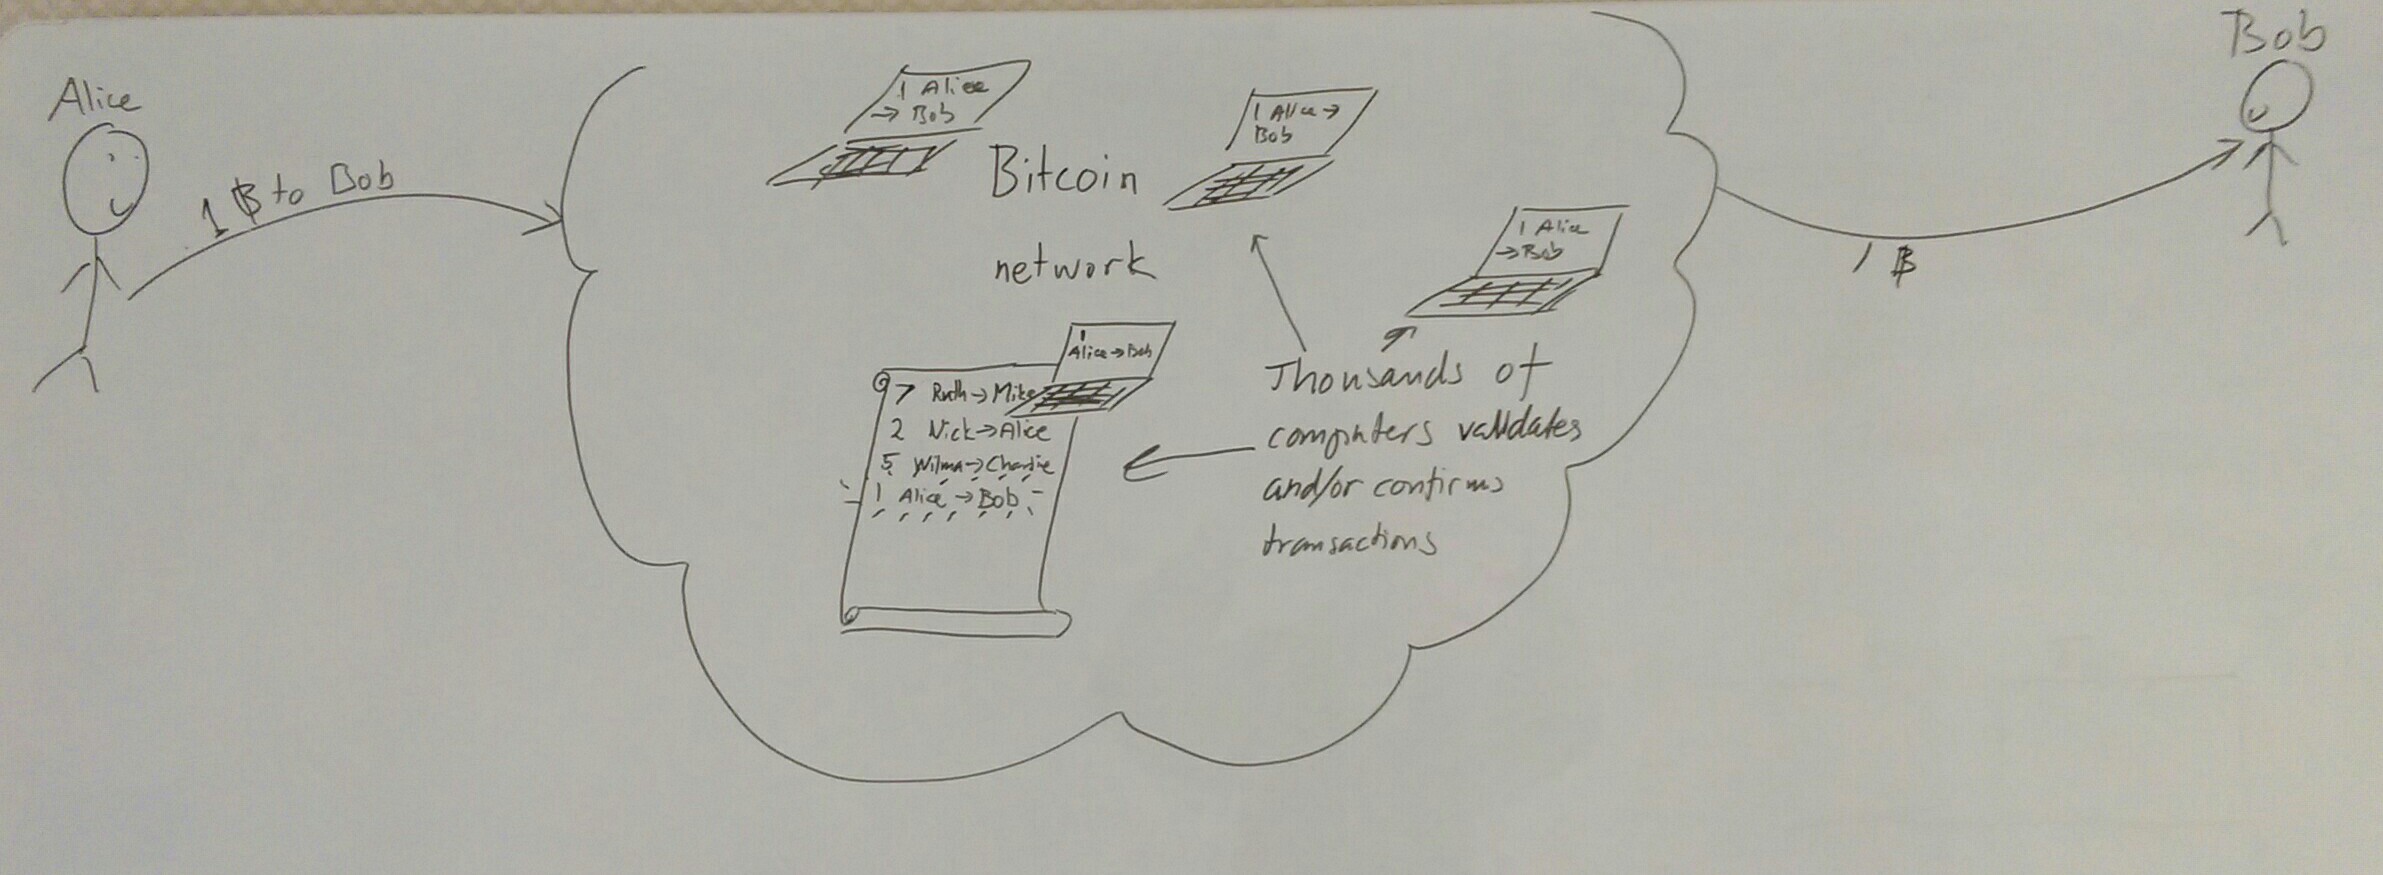 Alice
1 ₿ to Bob
1 Alice
→ Bob
Bitcoin
network
1 Alice →
Bob
1 Alice
→ Bob
1
Alice → Bob
7 Ruth → Mike
2 Nick → Alice
5 Wilma → Charlie
1 Alice → Bob
Thousands of
computers validates
and/or confirms
transactions
1 ₿
Bob